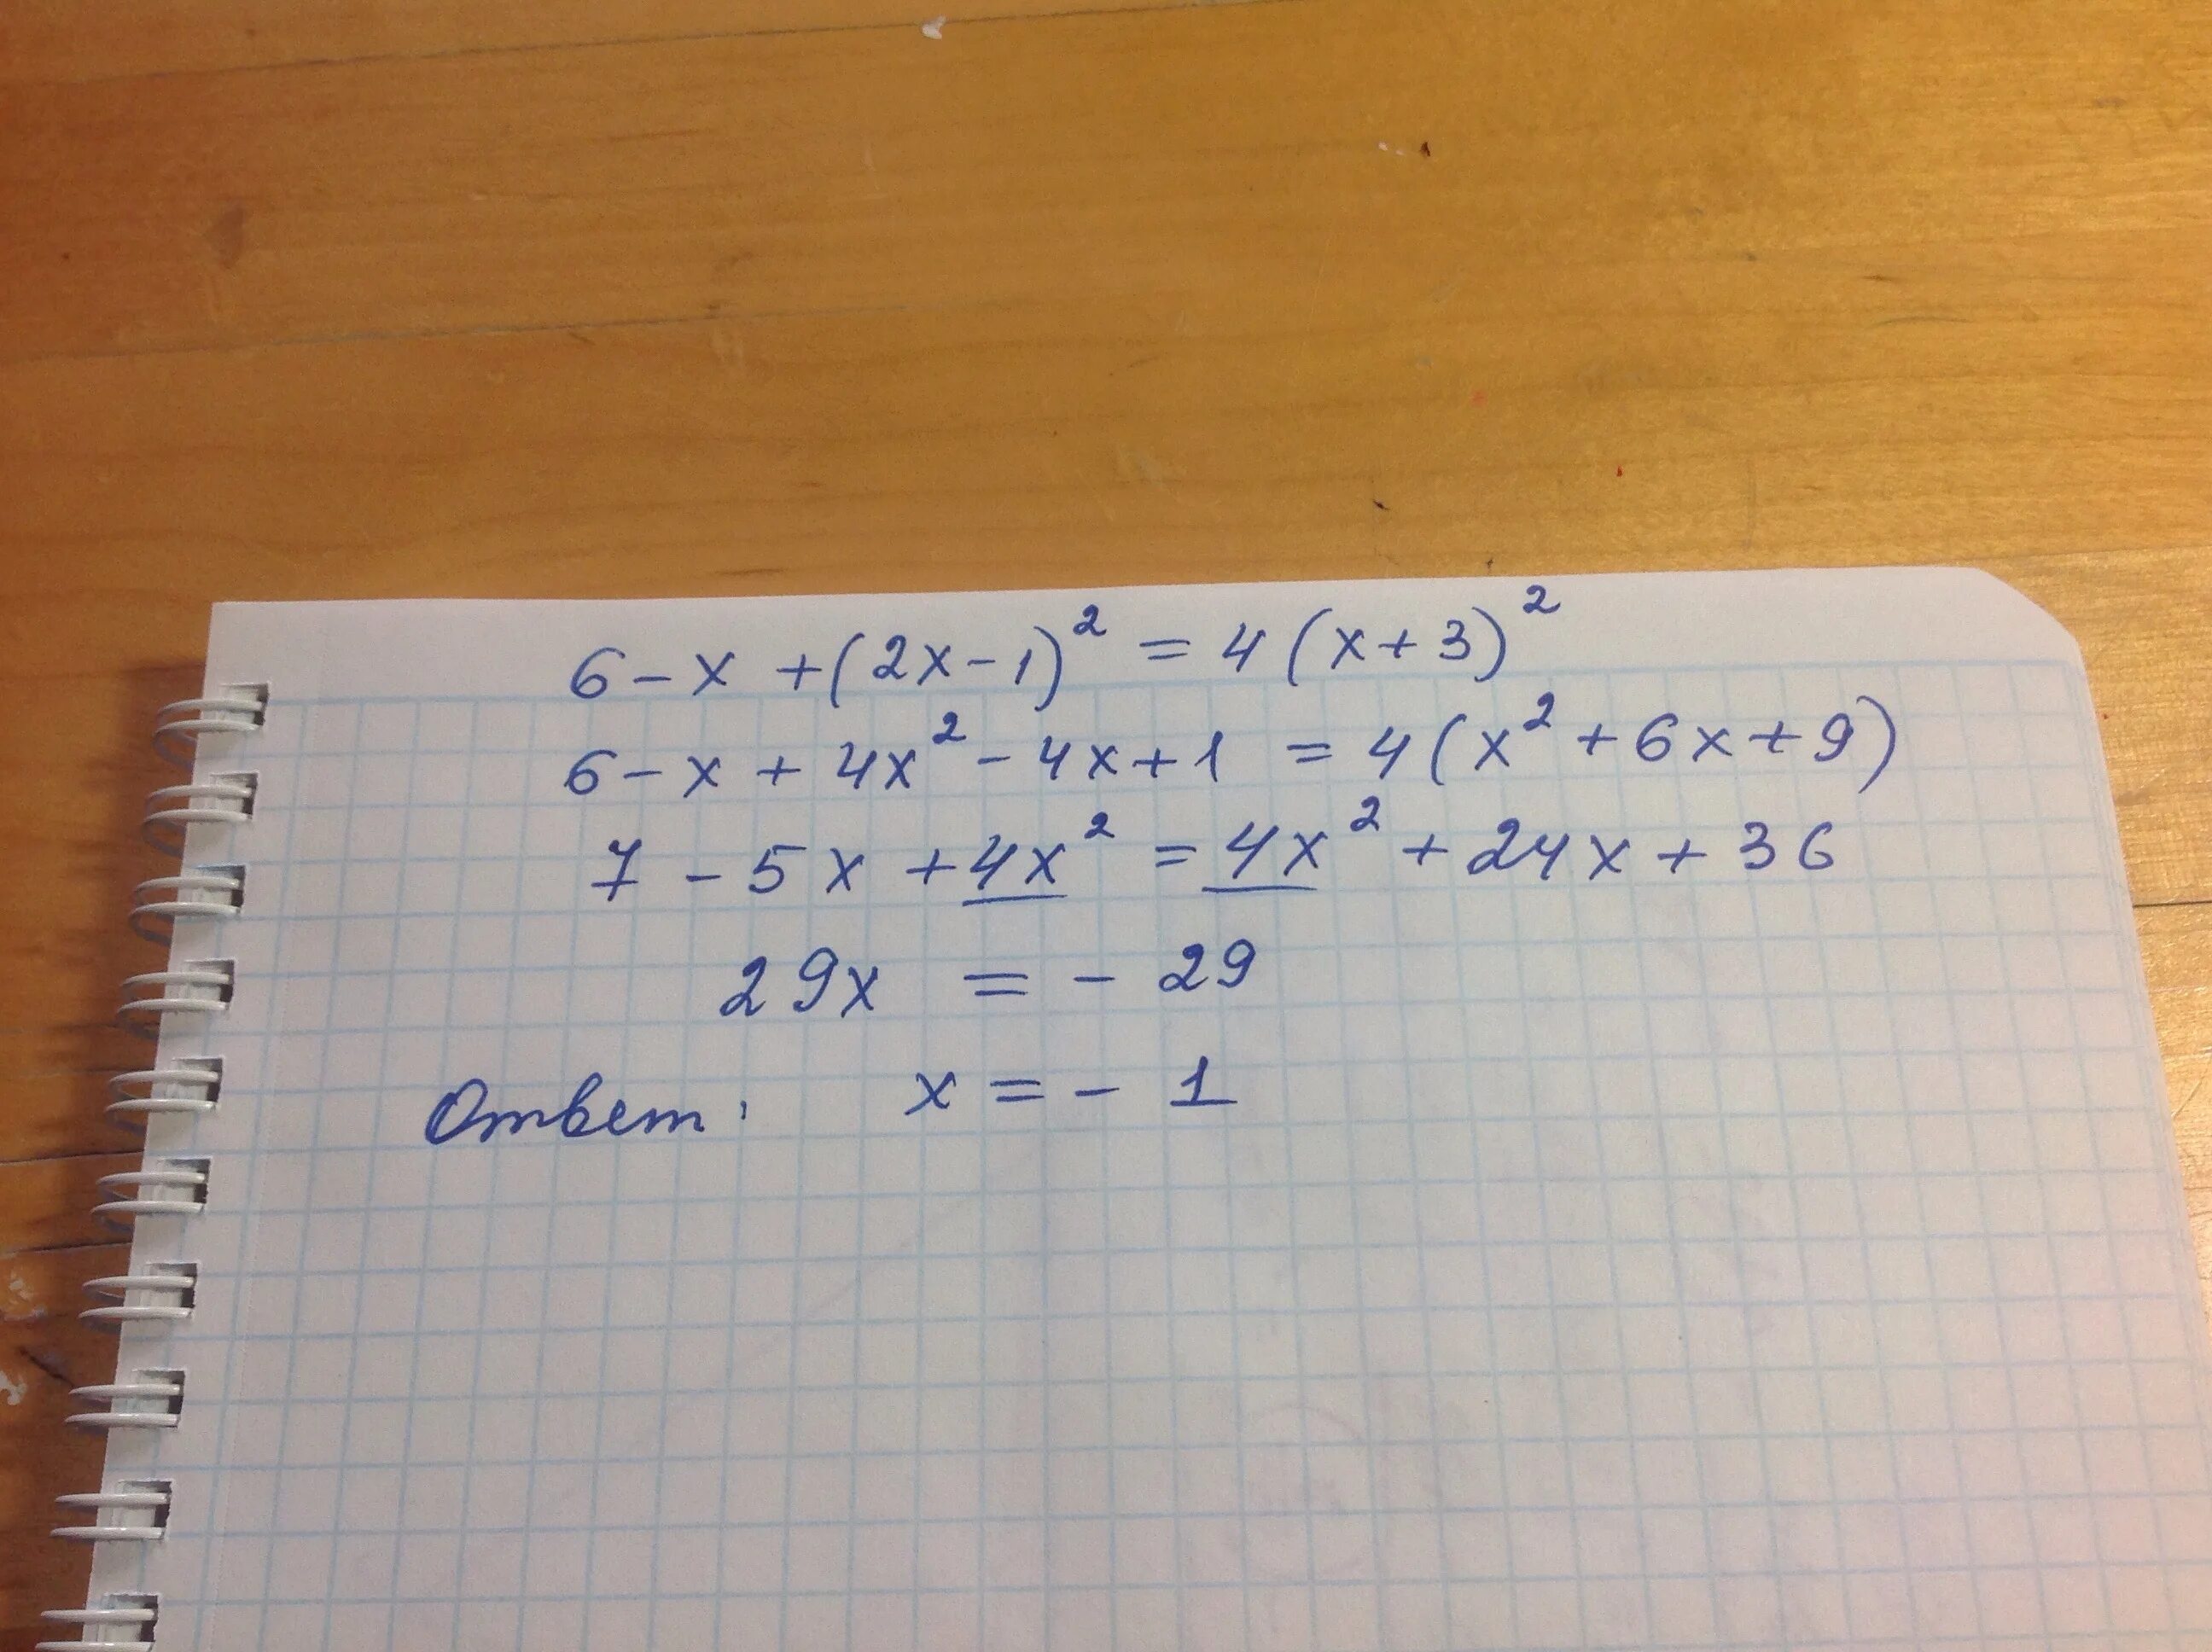 6 - x + (2x - 1)² = 4(x + 3)²
6 - x + 4x² - 4x + 1 = 4(x² + 6x + 9)
7 - 5x + 4x² = 4x² + 24x + 36
29x = - 29
Ответ: x = - 1